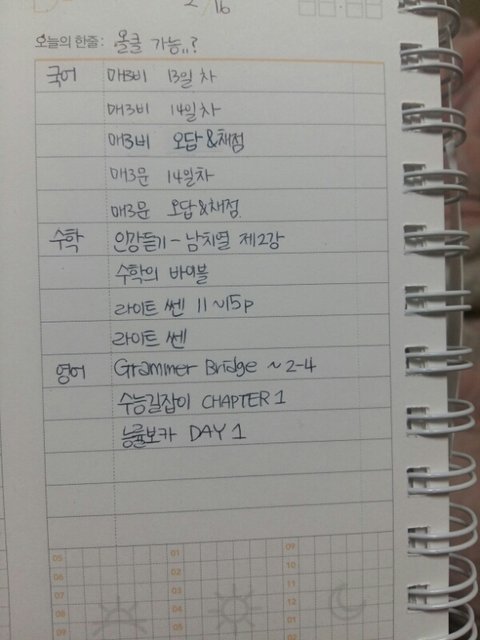 2/16
오늘의 한줄: 올클 가능..?
국어 매3비 13일차
매3비 14일차
매3비 오답&채점
매3문 14일차
매3문 오답&채점
수학 인강듣기-남치열 제2강
수학의 바이블
라이트 쎈 11~15p
라이트 쎈
영어 Grammer Bridge ~2-4
수능길잡이 CHAPTER 1
능률보카 DAY 1
05 01 09
06 02 10
07 03 11
08 04 12
09 05 01